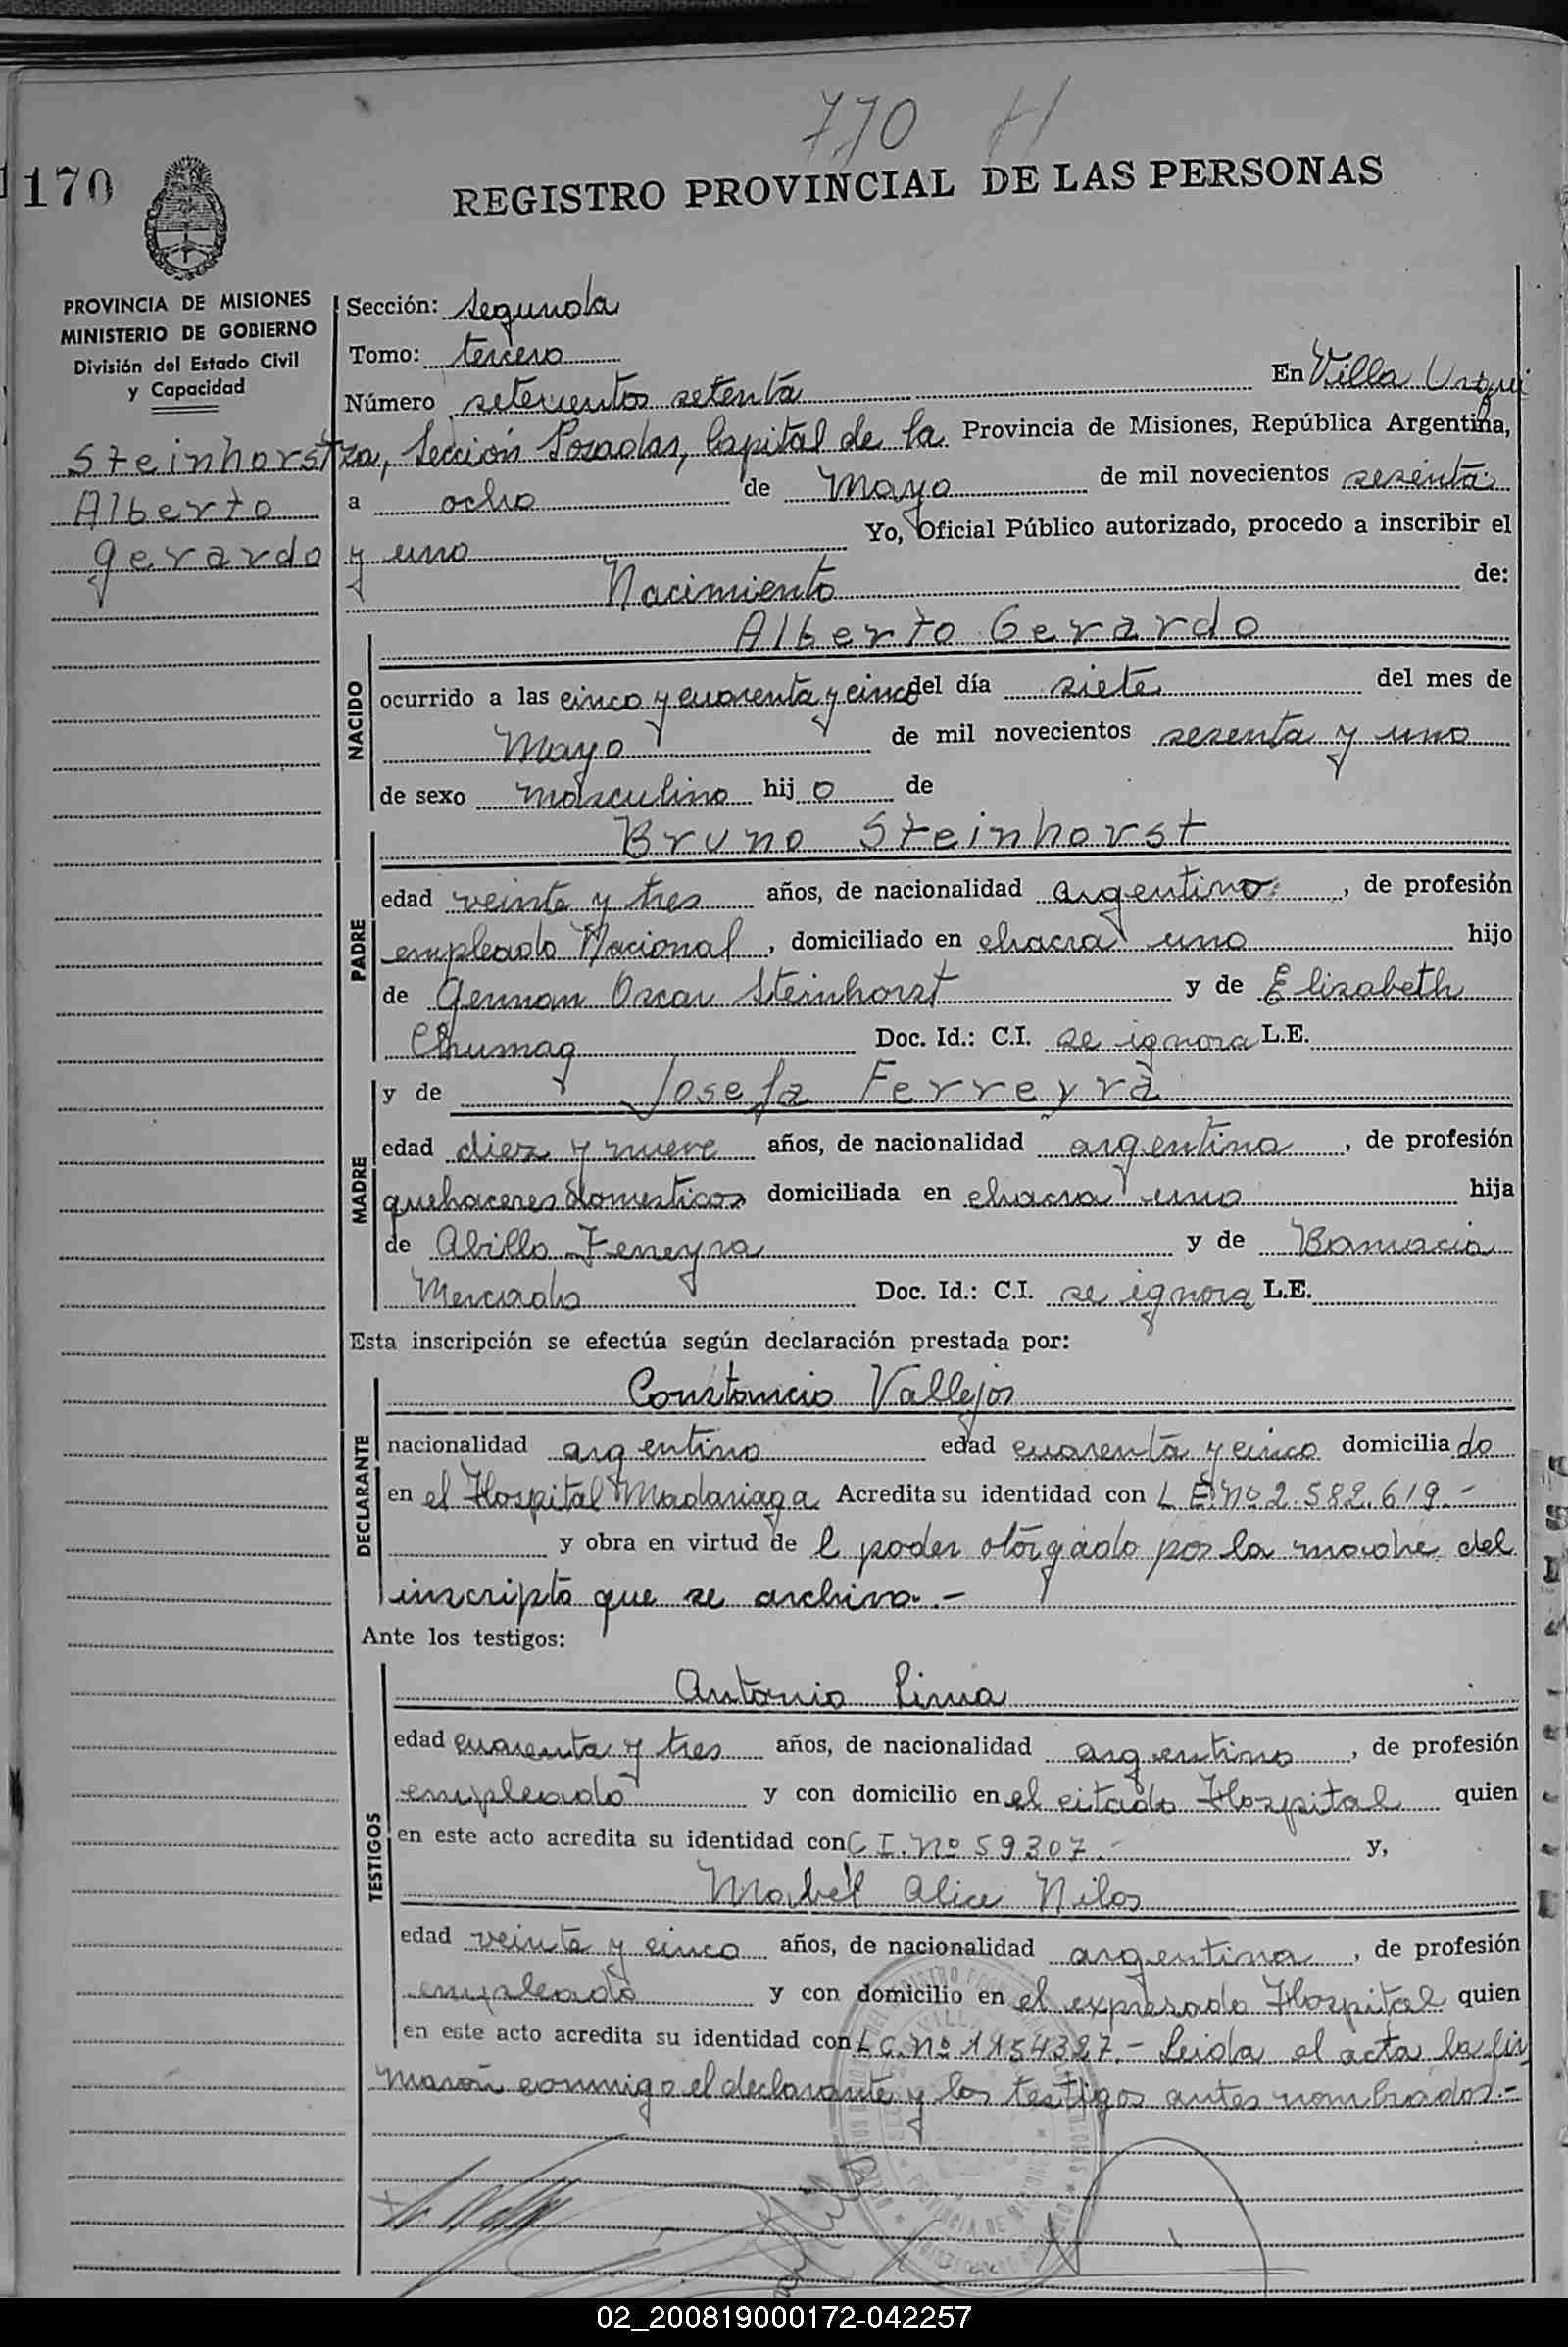 770 H
1170
REGISTRO PROVINCIAL DE LAS PERSONAS
PROVINCIA DE MISIONES
MINISTERIO DE GOBIERNO
División del Estado Civil
y Capacidad
Steinhorst
Alberto
Gerardo
Sección: segunda
Tomo: tercero
Número setecientos setenta En Villa Urqui
za, Sección Posadas, Capital de la Provincia de Misiones, República Argentina,
a ocho de Mayo de mil novecientos sesenta
y uno Yo, Oficial Público autorizado, procedo a inscribir el
Nacimiento de:
NACIDO
Alberto Gerardo
ocurrido a las cinco y cuarenta y cinco del día siete del mes de
Mayo de mil novecientos sesenta y uno
de sexo masculino hijo de
PADRE
Bruno Steinhorst
edad veinte y tres años, de nacionalidad argentino, de profesión
empleado Nacional, domiciliado en chacra uno hijo
de German Oscar Steinhorst y de Elizabeth
Chumag Doc. Id.: C.I. se ignora L.E.
MADRE
y de Josefa Ferreyra
edad diez y nueve años, de nacionalidad argentina, de profesión
quehaceres domesticos domiciliada en chacra uno hija
de Abillo Ferreyra y de
Mercado Doc. Id.: C.I. se ignora L.E.
Esta inscripción se efectúa según declaración prestada por:
DECLARANTE
Constancio Vallejos
nacionalidad argentino edad cuarenta y cinco domiciliado
en el Hospital Madariaga Acredita su identidad con L E. Nº 2.582.619.-
y obra en virtud del poder otorgado por la madre del
inscripto que se archiva.-
Ante los testigos:
TESTIGOS
Antonio Lima
edad cuarenta y tres años, de nacionalidad argentino, de profesión
empleado y con domicilio en el citado Hospital quien
en este acto acredita su identidad con C I. Nº 59307.- y,
Mabel Alice Nilos
edad veinte y cinco años, de nacionalidad argentina, de profesión
empleada y con domicilio en el expresado Hospital quien
en este acto acredita su identidad con L C. Nº 1154327.- Leida el acta la fir
maron conmigo el declarante y los testigos antes nombrados.-
02_200819000172-042257